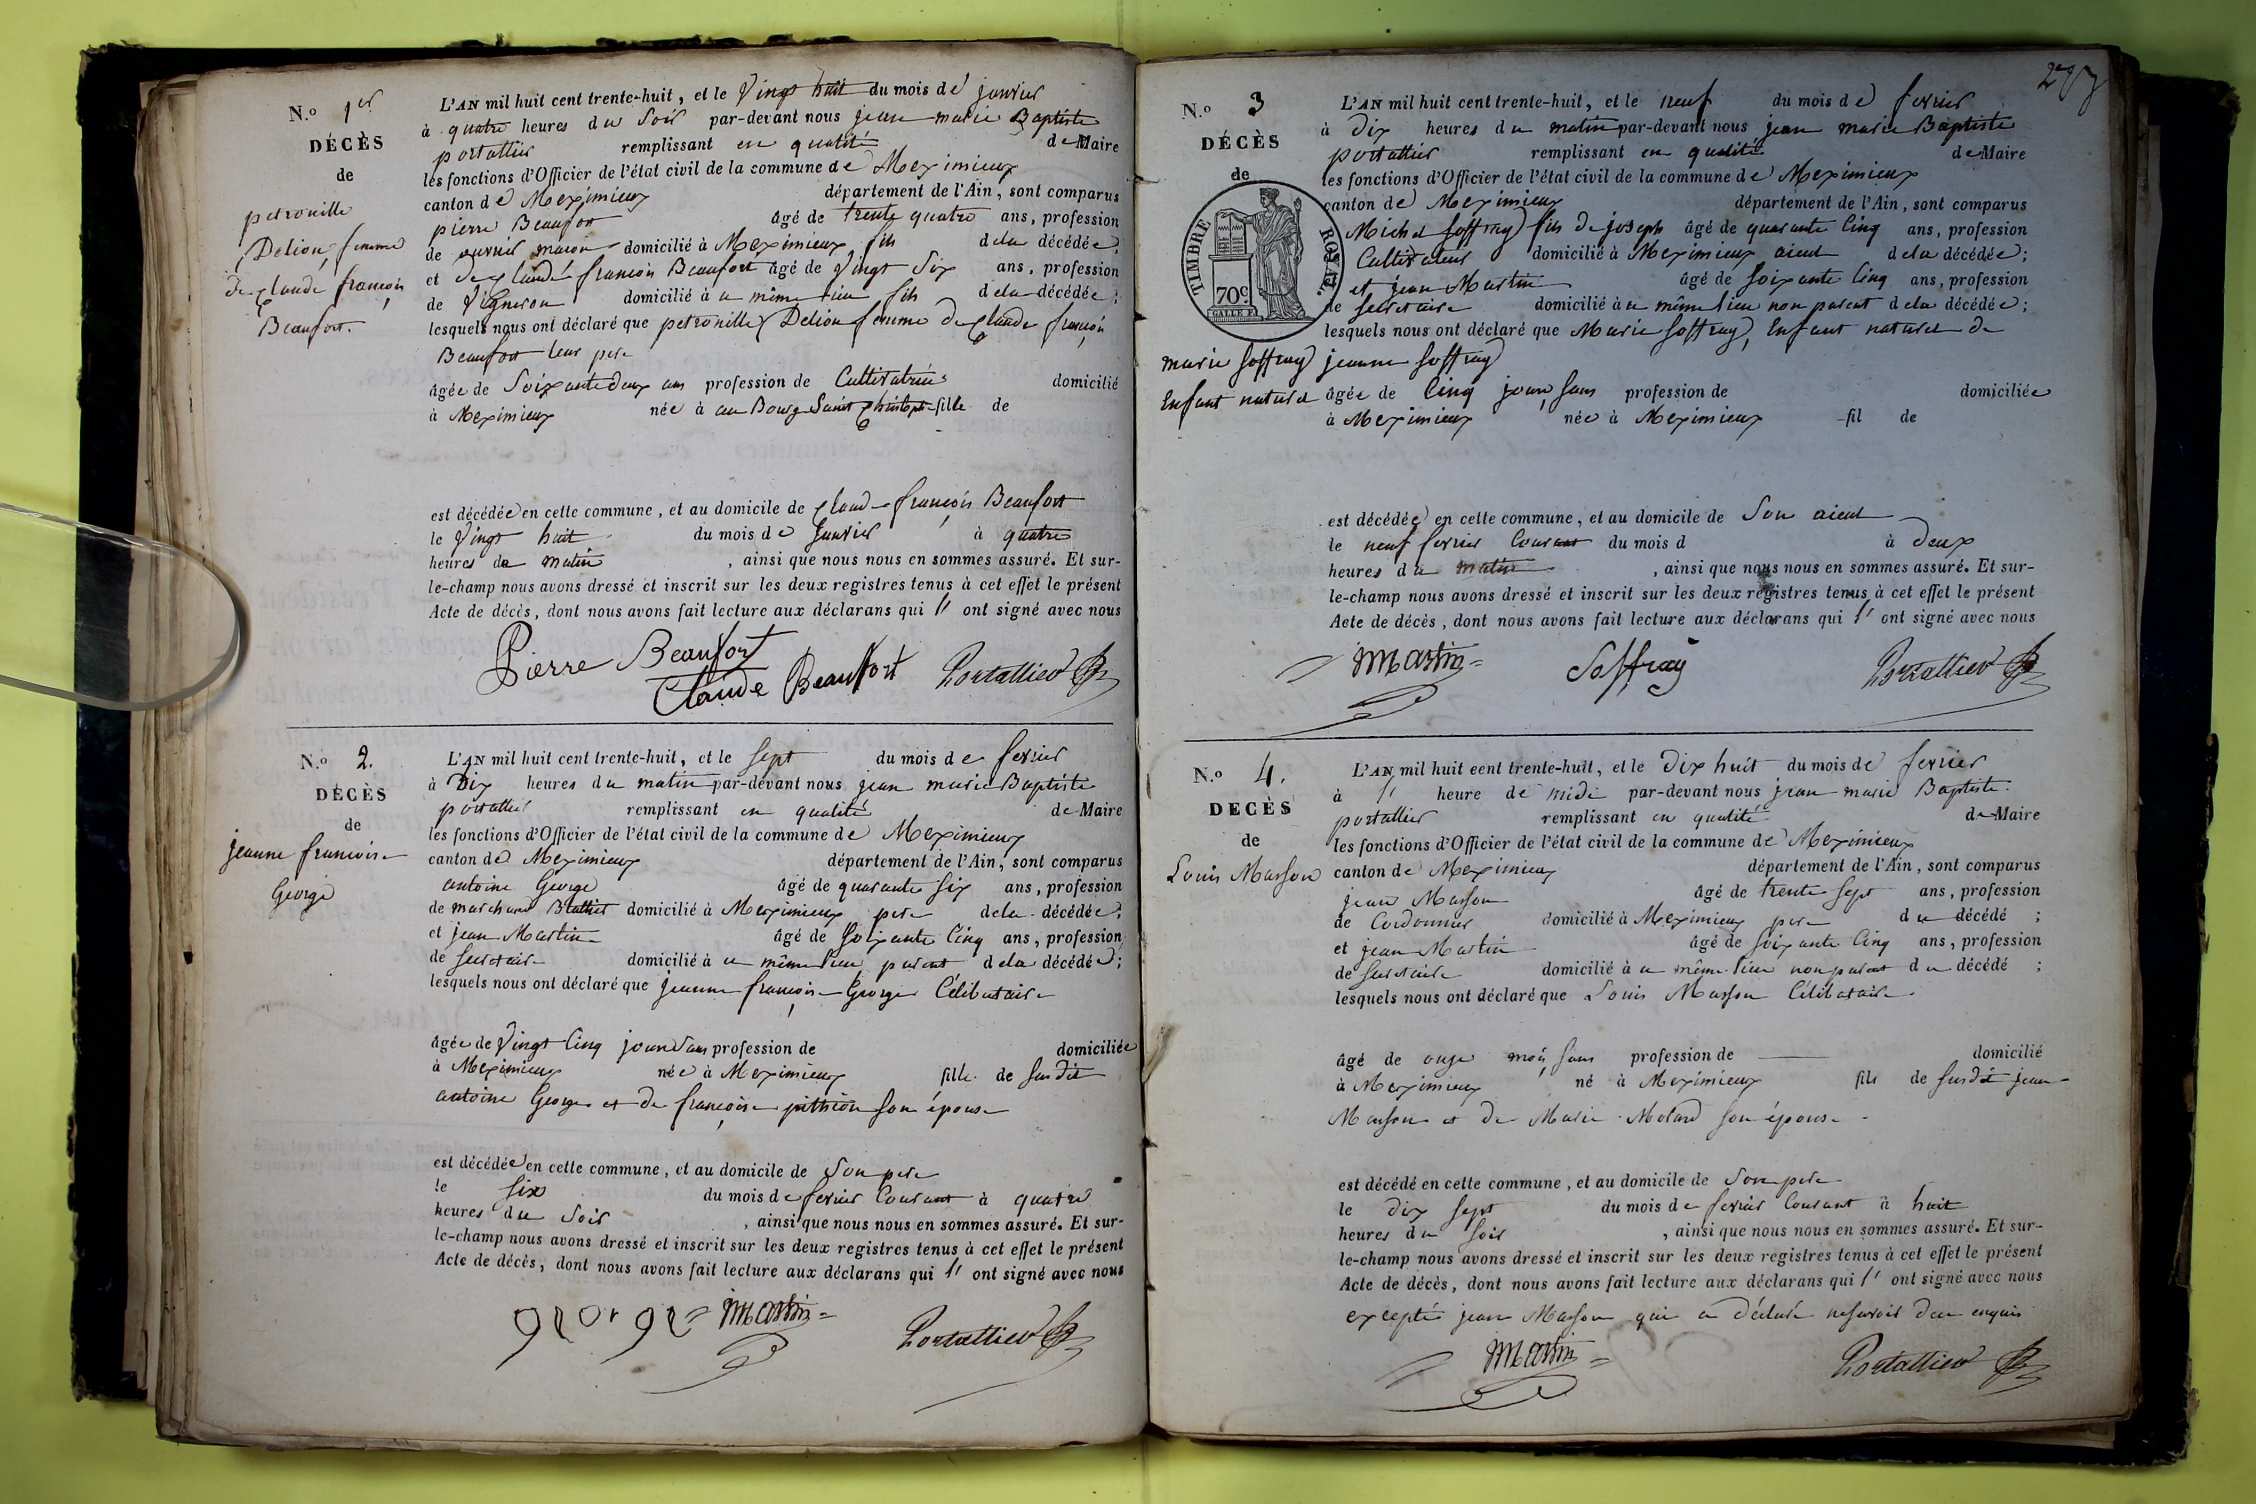 N.º 1er
DÉCÈS
de
petronille
Delion, femme
de Claude françois
Beaufort.
L'AN mil huit cent trente-huit, et le Vingt huit du mois de janvier
à quatre heures du Soir par-devant nous jean marie Baptiste
portallier remplissant en qualité de Maire
les fonctions d'Officier de l'état civil de la commune de Meximieux
canton de Meximieux département de l'Ain, sont comparus
pierre Beaufort âgé de trente quatre ans, profession
de ouvrier maçon domicilié à Meximieux fils de la décédée;
et de Claude françois Beaufort âgé de Vingt Six ans, profession
de Vigneron domicilié à u même lieu fils de la décédée;
lesquels nous ont déclaré que petronille Delion femme de Claude françois
Beaufort leur pere
âgée de Soixante deux ans profession de Cultivatrice domicilié
à Meximieux née à au Bourg Saint Christophe fille de
est décédée en cette commune, et au domicile de Claude françois Beaufort
le Vingt huit du mois de Janvier à quatre
heures de matin, ainsi que nous nous en sommes assuré. Et sur-
le-champ nous avons dressé et inscrit sur les deux registres tenus à cet effet le présent
Acte de décès, dont nous avons fait lecture aux déclarans qui ont signé avec nous
Pierre Beaufort
Claude Beaufort Portallier
N.º 2.
DÉCÈS
de
jeanne françoise
George
L'AN mil huit cent trente-huit, et le Sept du mois de fevrier
à Dix heures du matin par-devant nous jean marie Baptiste
portallier remplissant en qualité de Maire
les fonctions d'Officier de l'état civil de la commune de Meximieux
canton de Meximieux département de l'Ain, sont comparus
antoine George âgé de quarante Six ans, profession
de marchand domicilié à Meximieux pere de la décédée;
et jean Martin âgé de Soixante Cinq ans, profession
de Secretaire domicilié à u même lieu parent de la décédée;
lesquels nous ont déclaré que jeanne françoise George Célibataire
âgée de Vingt Cinq jours Sans profession de domiciliée
à Meximieux née à Meximieux fille de Susdit
antoine George et de françoise pithion Son épouse
est décédée en cette commune, et au domicile de Son pere
le Six du mois de fevrier Courant à quatre
heures du Soir, ainsi que nous nous en sommes assuré. Et sur-
le-champ nous avons dressé et inscrit sur les deux registres tenus à cet effet le présent
Acte de décès, dont nous avons fait lecture aux déclarans qui ont signé avec nous
george Martin Portallier
N.º 3
DÉCÈS
de
TIMBRE ROYAL.
70c
marie Soffray
Enfant naturel
L'AN mil huit cent trente-huit, et le neuf du mois de fevrier
à Dix heures du matin par-devant nous jean marie Baptiste
portallier remplissant en qualité de Maire
les fonctions d'Officier de l'état civil de la commune de Meximieux
canton de Meximieux département de l'Ain, sont comparus
Michel Soffray fils de joseph âgé de quarante Cinq ans, profession
Cultivateur domicilié à Meximieux aieul de la décédée;
et jean Martin âgé de Soixante Cinq ans, profession
de Secretaire domicilié à u même lieu non parent de la décédée;
lesquels nous ont déclaré que Marie Soffray, Enfant naturel de
jeanne Soffray
âgée de Cinq jours Sans profession de domiciliée
à Meximieux née à Meximieux fil de
est décédée en cette commune, et au domicile de Son aieul
le neuf fevrier Courant du mois d à Deux
heures du matin, ainsi que nous nous en sommes assuré. Et sur-
le-champ nous avons dressé et inscrit sur les deux registres tenus à cet effet le présent
Acte de décès, dont nous avons fait lecture aux déclarans qui ont signé avec nous
Martin Soffray Portallier
N.º 4.
DÉCÈS
de
Louis Masson
L'AN mil huit cent trente-huit, et le Dix huit du mois de fevrier
à heure de midi par-devant nous jean marie Baptiste
portallier remplissant en qualité de Maire
les fonctions d'Officier de l'état civil de la commune de Meximieux
canton de Meximieux département de l'Ain, sont comparus
jean Masson âgé de trente Sept ans, profession
de Cordonnier domicilié à Meximieux pere du décédé;
et jean Martin âgé de Soixante Cinq ans, profession
de Secretaire domicilié à u même lieu non parent du décédé;
lesquels nous ont déclaré que Louis Masson Célibataire
âgé de onze mois Sans profession de domicilié
à Meximieux né à Meximieux fils de Susdit jean
Masson et de Marie Molard Son épouse
est décédé en cette commune, et au domicile de Son pere
le Dix Sept du mois de fevrier Courant à huit
heures du Soir, ainsi que nous nous en sommes assuré. Et sur-
le-champ nous avons dressé et inscrit sur les deux registres tenus à cet effet le présent
Acte de décès, dont nous avons fait lecture aux déclarans qui ont signé avec nous
excepté jean Masson qui a déclaré ne Savoir de enquis
Martin Portallier